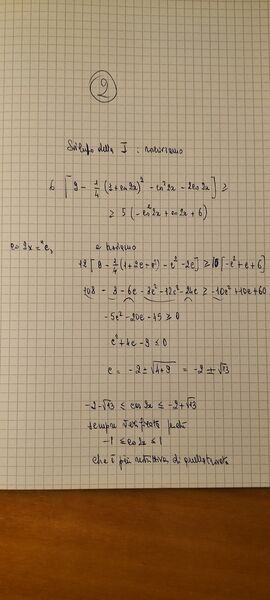 2
Sviluppo della I : risolviamo
6 [ 9 - 1/4 (1 + cos 2x)² - cos² 2x - 2 cos 2x ] ≥
≥ 5 (- cos² 2x + cos 2x + 6)
cos 2x = c,
12 [ 9 - 1/4 (1 + 2c + c²) - c² - 2c ] ≥ 10 [ -c² + c + 6 ]
108 - 3 - 6c - 3c² - 12c² - 24c ≥ -10c² + 10c + 60
c² + 4c - 9 ≤ 0
c = -2 ± √(4+9) = -2 ± √13
-2-√13 ≤ cos 2x ≤ -2+√13
sempre verificata
-1 ≤ cos 2x ≤ 1
che è più restrittiva di quella trovata